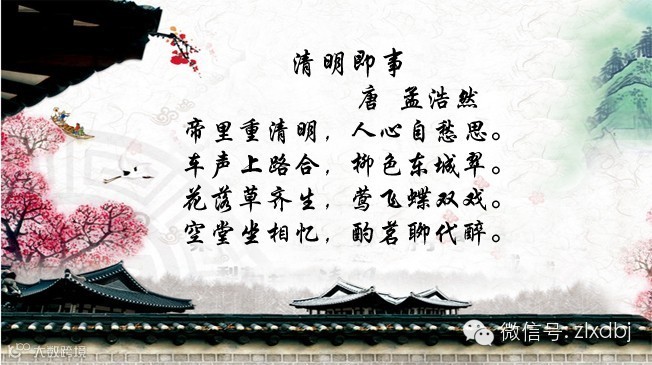 清明即事
唐 孟浩然
帝里重清明，人心自愁思。
车声上路合，柳色东城翠。
花落草齐生，莺飞蝶双戏。
空堂坐相忆，酌茗聊代醉。
微信号: zlxdbj
大数跨境